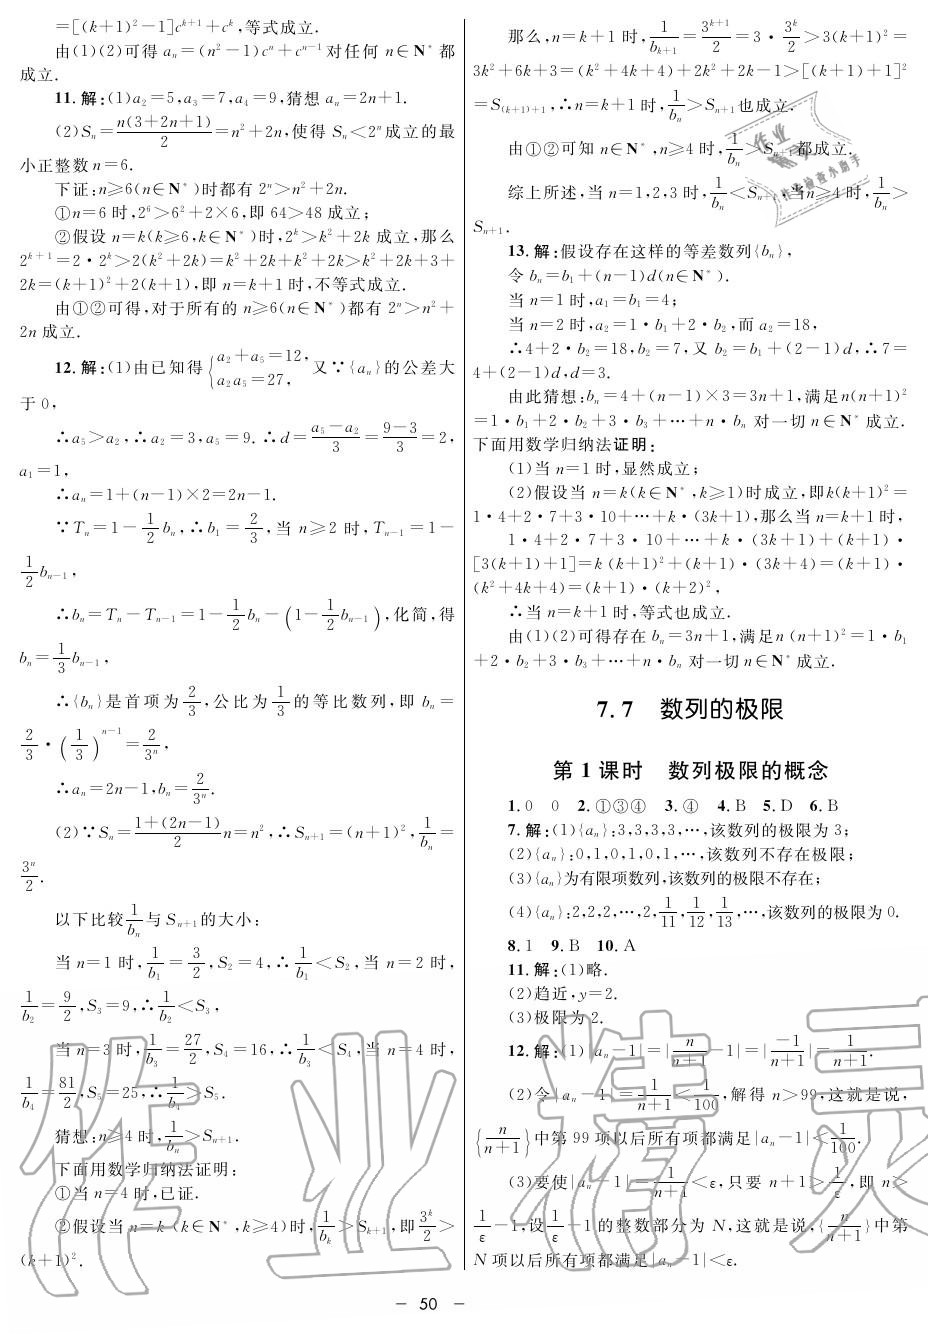 =[(k+1)²-1]cᵏ⁺¹+cᵏ,等式成立.
由(1)(2)可得 aₙ=(n²-1)cⁿ+cⁿ⁻¹对任何 n∈N* 都
成立.
11.解:(1)a₂=5,a₃=7,a₄=9,猜想 aₙ=2n+1.
(2)Sₙ=n(3+2n+1)/2=n²+2n,使得 Sₙ<2ⁿ成立的最
小正整数 n=6.
下证:n≥6(n∈N*)时都有 2ⁿ>n²+2n.
①n=6 时,2⁶>6²+2×6,即 64>48 成立;
②假设 n=k(k≥6,k∈N*)时,2ᵏ>k²+2k 成立,那么
2ᵏ⁺¹=2·2ᵏ>2(k²+2k)=k²+2k+k²+2k>k²+2k+3+
2k=(k+1)²+2(k+1),即 n=k+1 时,不等式成立.
由①②可得,对于所有的 n≥6(n∈N*)都有 2ⁿ>n²+
2n 成立.
12.解:(1)由已知得{a₂+a₅=12, a₂a₅=27, 又∵{aₙ}的公差大
于 0,
∴a₅>a₂,∴a₂=3,a₅=9.∴d=(a₅-a₂)/3=(9-3)/3=2,
a₁=1,
∴aₙ=1+(n-1)×2=2n-1.
∵Tₙ=1-1/2 bₙ,∴b₁=2/3,当 n≥2 时,Tₙ₋₁=1-
1/2 bₙ₋₁,
∴bₙ=Tₙ-Tₙ₋₁=1-1/2 bₙ-(1-1/2 bₙ₋₁),化简,得
bₙ=1/3 bₙ₋₁,
∴{bₙ}是首项为2/3,公比为1/3的等比数列,即 bₙ=
2/3·(1/3)ⁿ⁻¹=2/3ⁿ,
∴aₙ=2n-1,bₙ=2/3ⁿ.
(2)∵Sₙ=[1+(2n-1)]/2 n=n²,∴Sₙ₊₁=(n+1)²,1/bₙ=
3ⁿ/2.
以下比较1/bₙ与 Sₙ₊₁的大小:
当 n=1 时,1/b₁=3/2,S₂=4,∴1/b₁<S₂,当 n=2 时,
1/b₂=9/2,S₃=9,∴1/b₂<S₃,
当 n=3 时,1/b₃=27/2,S₄=16,∴1/b₃<S₄,当 n=4 时,
1/b₄=81/2,S₅=25,∴1/b₄>S₅.
猜想:n≥4 时,1/bₙ>Sₙ₊₁.
下面用数学归纳法证明:
①当 n=4 时,已证.
②假设当 n=k (k∈N*,k≥4)时,1/bₖ>Sₖ₊₁,即3ᵏ/2>
(k+1)².
那么,n=k+1 时,1/bₖ₊₁=3ᵏ⁺¹/2=3·3ᵏ/2>3(k+1)²=
3k²+6k+3=(k²+4k+4)+2k²+2k-1>[(k+1)+1]²
=S₍ₖ₊₁₎₊₁,∴n=k+1 时,1/bₙ>Sₙ₊₁也成立.
由①②可知 n∈N*,n≥4 时,1/bₙ>Sₙ₊₁都成立.
综上所述,当 n=1,2,3 时,1/bₙ<Sₙ₊₁,当n≥4 时,1/bₙ>
Sₙ₊₁.
13.解:假设存在这样的等差数列{bₙ},
令 bₙ=b₁+(n-1)d(n∈N*).
当 n=1 时,a₁=b₁=4;
当 n=2 时,a₂=1·b₁+2·b₂,而 a₂=18,
∴4+2·b₂=18,b₂=7,又 b₂=b₁+(2-1)d,∴7=
4+(2-1)d,d=3.
由此猜想:bₙ=4+(n-1)×3=3n+1,满足n(n+1)²
=1·b₁+2·b₂+3·b₃+…+n·bₙ 对一切 n∈N* 成立.
下面用数学归纳法证明:
(1)当 n=1 时,显然成立;
(2)假设当 n=k(k∈N*,k≥1)时成立,即k(k+1)²=
1·4+2·7+3·10+…+k·(3k+1),那么当 n=k+1 时,
1·4+2·7+3·10+…+k·(3k+1)+(k+1)·
[3(k+1)+1]=k (k+1)²+(k+1)·(3k+4)=(k+1)·
(k²+4k+4)=(k+1)·(k+2)²,
∴当 n=k+1 时,等式也成立.
由(1)(2)可得存在 bₙ=3n+1,满足n (n+1)²=1·b₁
+2·b₂+3·b₃+…+n·bₙ 对一切 n∈N* 成立.
7.7 数列的极限
第 1 课时 数列极限的概念
1.0 0 2.①③④ 3.④ 4.B 5.D 6.B
7.解:(1){aₙ}:3,3,3,3,…,该数列的极限为 3;
(2){aₙ}:0,1,0,1,0,1,…,该数列不存在极限;
(3){aₙ}为有限项数列,该数列的极限不存在;
(4){aₙ}:2,2,2,…,2,1/11,1/12,1/13,…,该数列的极限为 0.
8.1 9.B 10.A
11.解:(1)略.
(2)趋近,y=2.
(3)极限为 2.
12.解:(1)|aₙ-1|=|n/(n+1)-1|=|-1/(n+1)|=1/(n+1).
(2)令|aₙ-1|=1/(n+1)<1/100,解得 n>99,这就是说,
{n/(n+1)}中第 99 项以后所有项都满足|aₙ-1|<1/100.
(3)要使|aₙ-1|=1/(n+1)<ε,只要 n+1>1/ε,即 n>
1/ε-1,设1/ε-1 的整数部分为 N,这就是说,{n/(n+1)}中第
N 项以后所有项都满足|aₙ-1|<ε.
— 50 —
作业精灵